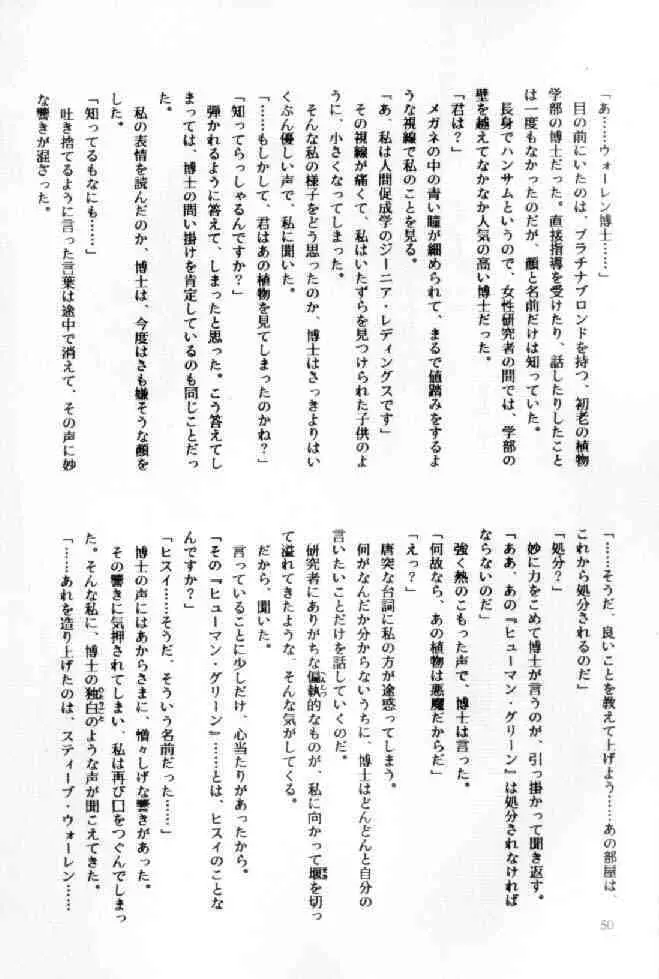 「あ……ウォーレン博士……」
　目の前にいたのは、プラチナブロンドを持つ、初老の植物
学部の博士だった。直接指導を受けたり、話したりしたこと
は一度もなかったのだが、顔と名前だけは知っていた。
　長身でハンサムというので、女性研究者の間では、学部の
壁を越えてなかなか人気の高い博士だった。
「君は？」
　メガネの中の青い瞳が細められて、まるで値踏みをするよ
うな視線で私のことを見る。
「あ、私は人間促成学のジーニア・レディングスです」
　その視線が痛くて、私はいたずらを見つけられた子供のよ
うに、小さくなってしまった。
　そんな私の様子をどう思ったのか、博士はさっきよりはい
くぶん優しい声で、私に聞いた。
「……もしかして、君はあの植物を見てしまったのかね？」
「知ってらっしゃるんですか？」
　弾かれるように答えて、しまったと思った。こう答えてし
まっては、博士の問い掛けを肯定しているのも同じことだっ
た。
　私の表情を読んだのか、博士は、今度はさも嫌そうな顔を
した。
「知ってるもなにも……」
　吐き捨てるように言った言葉は途中で消えて、その声に妙
な響きが混ざった。
「……そうだ、良いことを教えて上げよう……あの部屋は、
これから処分されるのだ」
「処分？」
　妙に力をこめて博士が言うのが、引っ掛かって聞き返す。
「ああ、あの『ヒューマン・グリーン』は処分されなければ
ならないのだ」
　強く熱のこもった声で、博士は言った。
「何故なら、あの植物は悪魔だからだ」
「えっ？」
　唐突な台詞に私の方が途惑ってしまう。
　何がなんだか分からないうちに、博士はどんどんと自分の
言いたいことだけを話していくのだ。
　研究者にありがちな偏執的なものが、私に向かって堰を切っ
て溢れてきたような、そんな気がしてくる。
　だから、聞いた。
　言っていることに少しだけ、心当たりがあったから。
「その『ヒューマン・グリーン』……とは、ヒスイのことな
んですか？」
「ヒスイ……そうだ、そういう名前だった……」
　博士の声にはあからさまに、憎々しげな響きがあった。
　その響きに気押されてしまい、私は再び口をつぐんでしまっ
た。そんな私に、博士の独白のような声が聞こえてきた。
「……あれを造り上げたのは、スティーブ・ウォーレン……
50